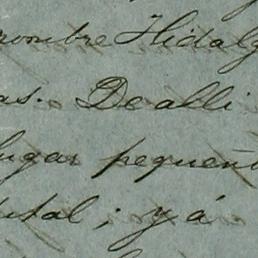 nombre Hidalg
as. De alli
lugar pequeñ
; y á